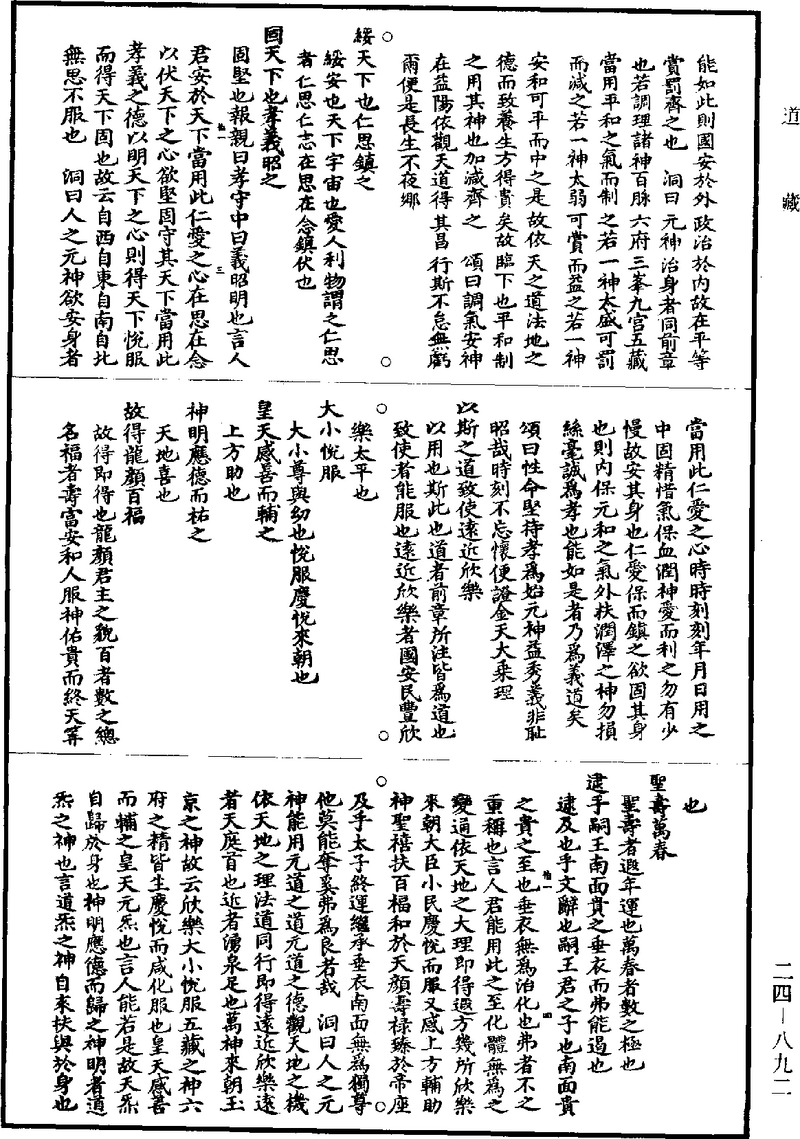 道藏
能如此則國安於外政治於內故在平等
賞罰齊之也　洞曰元神治身者同前章
也若調理諸神百脉六府三峯九宮五藏
當用平和之氣而制之若一神太盛可罰
而減之若一神太弱可賞而益之若一神
安和可平而中之是故依天之道法地之
德而致養生方得貴矣故臨下也平和制
之用其神也加減齊之　頌曰調氣安神
在益陽依觀天道得其昌行斯不怠無虧
爾便是長生不夜鄉
綏天下也仁思鎮之
綏安也天下宇宙也愛人利物謂之仁思
者仁思仁志在思在念鎮伏也
固天下也孝義昭之
固堅也報親曰孝守中曰義昭明也言人
君安於天下當用此仁愛之心在思在念
以伏天下之心欲堅固守其天下當用此
孝義之德以明天下之心則得天下悅服
而得天下固也故云自西自東自南自北
無思不服也　洞曰人之元神欲安身者
當用此仁愛之心時時刻刻年月日用之
中固精惜氣保血潤神愛而利之勿有少
慢故安其身也仁愛保而鎮之欲固其身
也則內保元和之氣外扶潤澤之神勿損
絲毫誠爲孝也能如是者乃爲義道矣
頌曰性命堅持孝爲始元神益秀義非耻
昭哉時刻不忘懷便證金天大乘理
以斯之道致使遠近欣樂
以用也斯此也道者前章所注皆爲道也
致使者能服也遠近欣樂者國安民豐欣
樂太平也
大小悅服
大小尊與幼也悅服慶悅來朝也
皇天感善而輔之
上方助也
神明應德而祐之
天地喜也
故得龍顏百福
故得即得也龍顏君主之貌百者數之總
名福者壽富安和人服神佑貴而終天筭
也
聖壽萬春
聖壽者遐年運也萬春者數之極也
逮乎嗣王南面貴之垂衣而弗能過也
逮及也乎文辭也嗣王君之子也南面貴
之貴之至也垂衣無爲治化也弗者不之
重稱也言人君能用此之至化體無爲之
變通依天地之大理即得遐方幾所欣樂
來朝大臣小民慶悅而服又感上方輔助
神聖禧扶百福和於天顏壽祿臻於帝座
及乎太子終運繼承垂衣南面無爲獨尊
他莫能奪奚弗爲良者哉　洞曰人之元
神能用元道之道元道之德觀天地之機
依天地之理法道同行即得遠近欣樂遠
者天庭百也近者湧泉足也萬神來朝玉
京之神故云欣樂大小悅服五藏之神六
府之精皆生慶悅而咸化服也皇天感善
而輔之皇天元炁也言人能若是故天炁
自歸於身也神明應德而歸之神明者道
炁之神也言道炁之神自來扶與於身也
二四—八九二